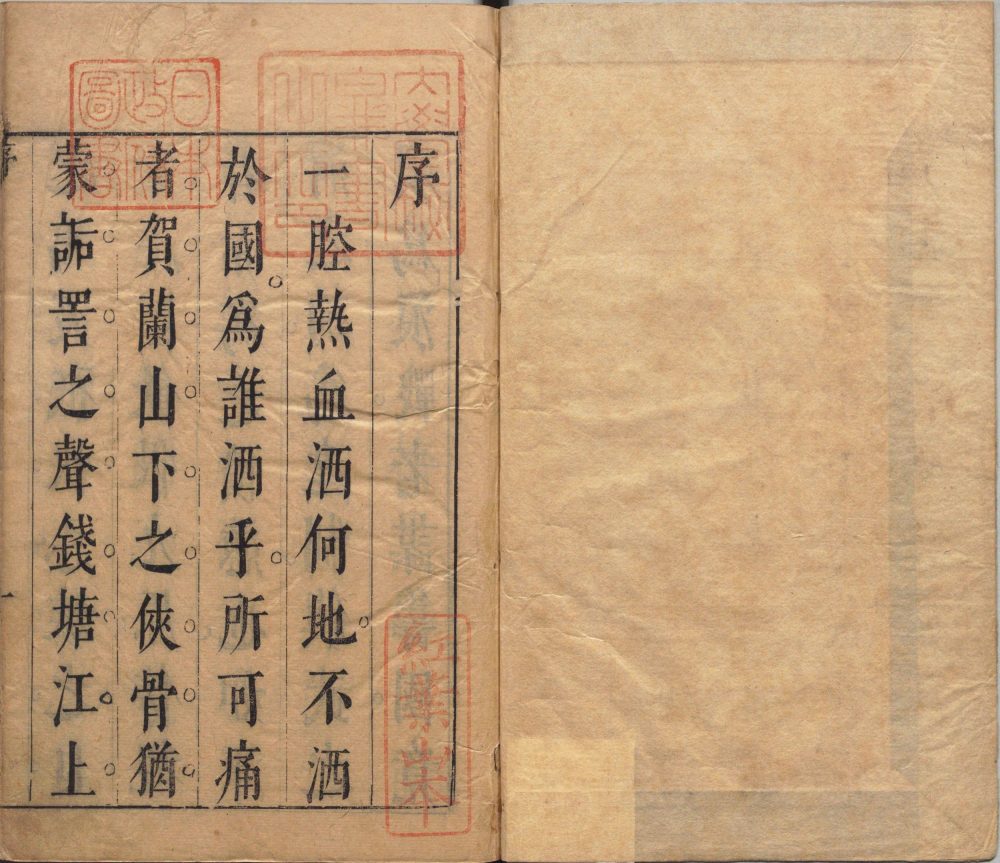 序
一腔熱血洒何地不洒
於國爲誰洒乎所可痛
者賀蘭山下之俠骨猶
蒙詬詈之聲錢塘江上
序
一
日本政府圖書